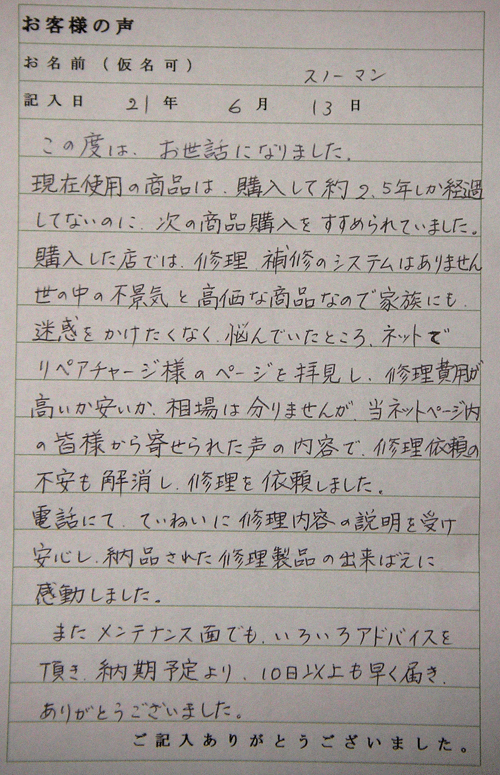 お客様の声
お名前(仮名可) スノーマン
記入日 21年 6月 13日
この度は、お世話になりました。
現在使用の商品は、購入して約2.5年しか経過
してないのに、次の商品購入をすすめられていました。
購入した店では、修理 補修のシステムはありません
世の中の不景気と高価な商品なので家族にも、
迷惑をかけたくなく、悩んでいたところ、ネットで
リペアチャージ様のページを拝見し、修理費用が
高いか安いか、相場は分りませんが、当ネットページ内
の皆様から寄せられた声の内容で、修理依頼の
不安も解消し、修理を依頼しました。
電話にて、ていねいに修理内容の説明を受け
安心し、納品された修理製品の出来ばえに
感動しました。
また メンテナンス面でも、いろいろアドバイスを
頂き、納期予定より、10日以上も早く届き、
ありがとうございました。
ご記入ありがとうございました。